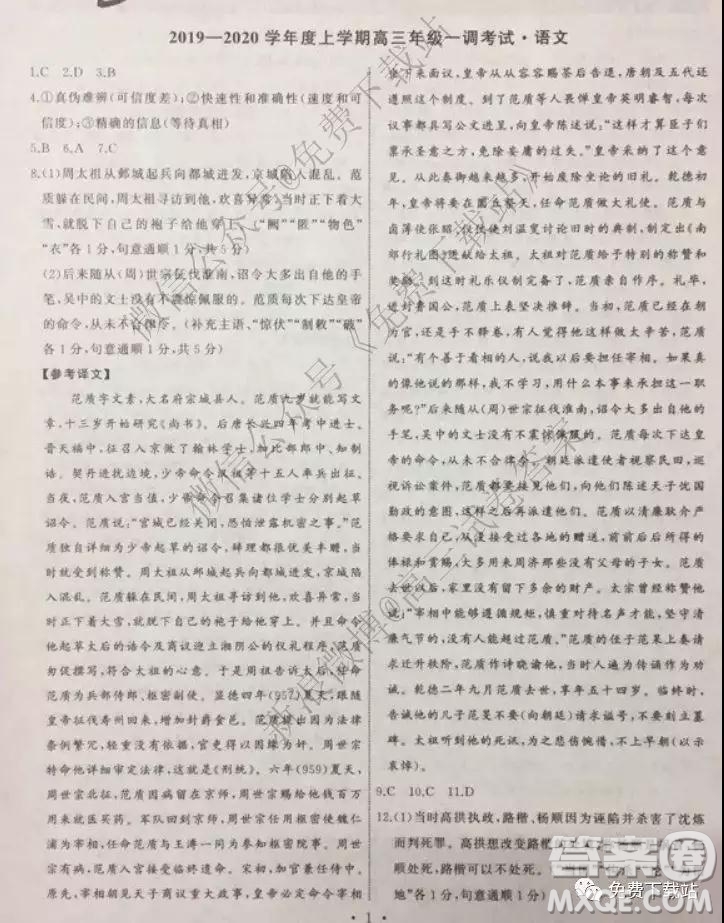 2019—2020学年度上学期高三年级一调考试·语文
1.C 2.D 3.B
4.①真伪难辨(可信度差);②快速性和准确性(速度和可
信度);③精确的信息(等待真相)
5.B 6.A 7.C
8.(1)周太祖从邺城起兵向都城进发,京城陷入混乱。范
质躲在民间,周太祖寻访到他,欢喜异常,当时正下着大
雪,就脱下自己的袍子给他穿上。(“阙”“匿”“物色”
“衣”各1分,句意通顺1分,共5分)
(2)后来随从(周)世宗征伐淮南,诏令大多出自他的手
笔,吴中的文士没有不震惊佩服的。范质每次下达皇帝
的命令,从未不合律令。(补充主语、“惊伏”“制敕”“破”
各1分,句意通顺1分,共5分)
【参考译文】
范质字文素,大名府宗城县人。范质九岁就能写文
章,十三岁开始研究《尚书》。后唐长兴四年考中进士。后
晋天福中,征召入京做了翰林学士,加比部郎中、知制
诰。契丹进扰边境,少帝命令派祖等十五人率兵出征。
当夜,范质入宫当值,少帝命令召集诸位学士分别起草
诏令。范质说:“宫城已经关闭,恐怕泄露机密之事。”范
质独自详细为少帝起草的诏令,辞理都很优美丰赡,当
时就受到称赞。周太祖从邺城起兵向都城进发,京城陷
入混乱。范质躲在民间,周太祖寻访到他,欢喜异常,当
时正下着大雪,就脱下自己的袍子给他穿上。并且命令
他起草太后的诰令及商议迎立湘阴公的仪礼程序,范质
匆促撰写,符合太祖的心意。于是周祖告诉太后,任命
范质为兵部侍郎、枢密副使。显德四年(957)夏天,跟随
皇帝征伐寿州回来,增加封爵食邑。范质提出因为法律
条例繁冗,轻重没有依据,官吏得以因此舞弊。周世宗
特命他详细审定法律,这就是《刑统》。六年(959)夏天,
周世宗北征,范质因病留在京师,周世宗赐给他钱让他
来就医买药。周世宗军队回到京师,周世宗枢密使魏仁
浦为宰相,任命范质与王溥一同为参知枢密院事。周世
宗病危,范质入宫接受临终遗命。宋初,加官兼任侍中。
原先,宰相拜见天子商议重大政事,皇帝一定命令宰相
坐下来面议,皇帝从从容容赐茶后告退,唐朝及五代还
遵照这个制度。到了范质等人畏惮皇帝英明睿智,每次
议事都具写公文进呈,向皇帝陈述说:“这样才算臣子们
禀承圣意之方,免除妄庸的过失。”皇帝听从了他们的意
见。从此奏御越来越多,开始废除坐论的旧礼。乾德初
年,皇帝将要在圜丘祭天,任命范质做大礼使。范质与
卤簿使张昭、仪仗使刘温叟讨论旧时的典制,制定出《南
郊行礼图》进献给太祖。太祖对范质给予特别的称赞和
奖掖。到这时礼乐仪制完备了,范质亲自作序。礼毕,
进封鲁国公,范质上表坚决推辞。当初,范质已经在朝
为官,还是手不释卷,有人觉得他这样做太辛苦,范质说:
“有个善于看相的人,说我以后要担任宰相。如果真的
像他说的那样,不学习的话用什么方法来担任这一职
务呢?”后来随从(周)世宗征伐淮南,诏令大多出自他的
手笔,吴中的文士没有不震惊佩服的。范质每次下达皇
帝的命令,从未不合律令。朝廷派遣使者视察民田,巡
视诉讼案件,范质都要接见他们,向他们陈述天子忧国
勤政的意图,这样之后再派遣他们。范质以清廉耿介严
格要求自己,没有接受过各地的赠送,前前后后所得的
俸禄和赏赐,大多用来周济那些没有父母的子女。范质
去世以后,家里没有剩下多余的财产。太宗曾经称赞他
说:“宰相中能够遵循规矩,慎重对待名声才能,坚守清
廉气节的,没有人能超过范质。”范质的侄子范杲上奏请
求升迁官职,范质作诗晓谕他,当时人递相为传诵作为劝
诫。乾德二年九月范质去世,享年五十四岁。临终时,
告诫他的儿子范旻不要(向朝廷)请求谥号,不要刻立墓
碑。太祖听到他的死讯,为之悲伤惋惜,不上早朝(以示
哀悼)。
9.C 10.C 11.D
12.(1)当时高拱执政,路楷、杨顺因为诬陷并杀害了沈炼
而判死罪。高拱想改变路楷
处死,路楷可以不处死。
地”各1分,句意通顺
· 1 ·
微信公众号@免费下载站
微信公众号《免费下载站》
新浪微博@高三试卷答案
答案圈
MXQE.COM
免费下载站